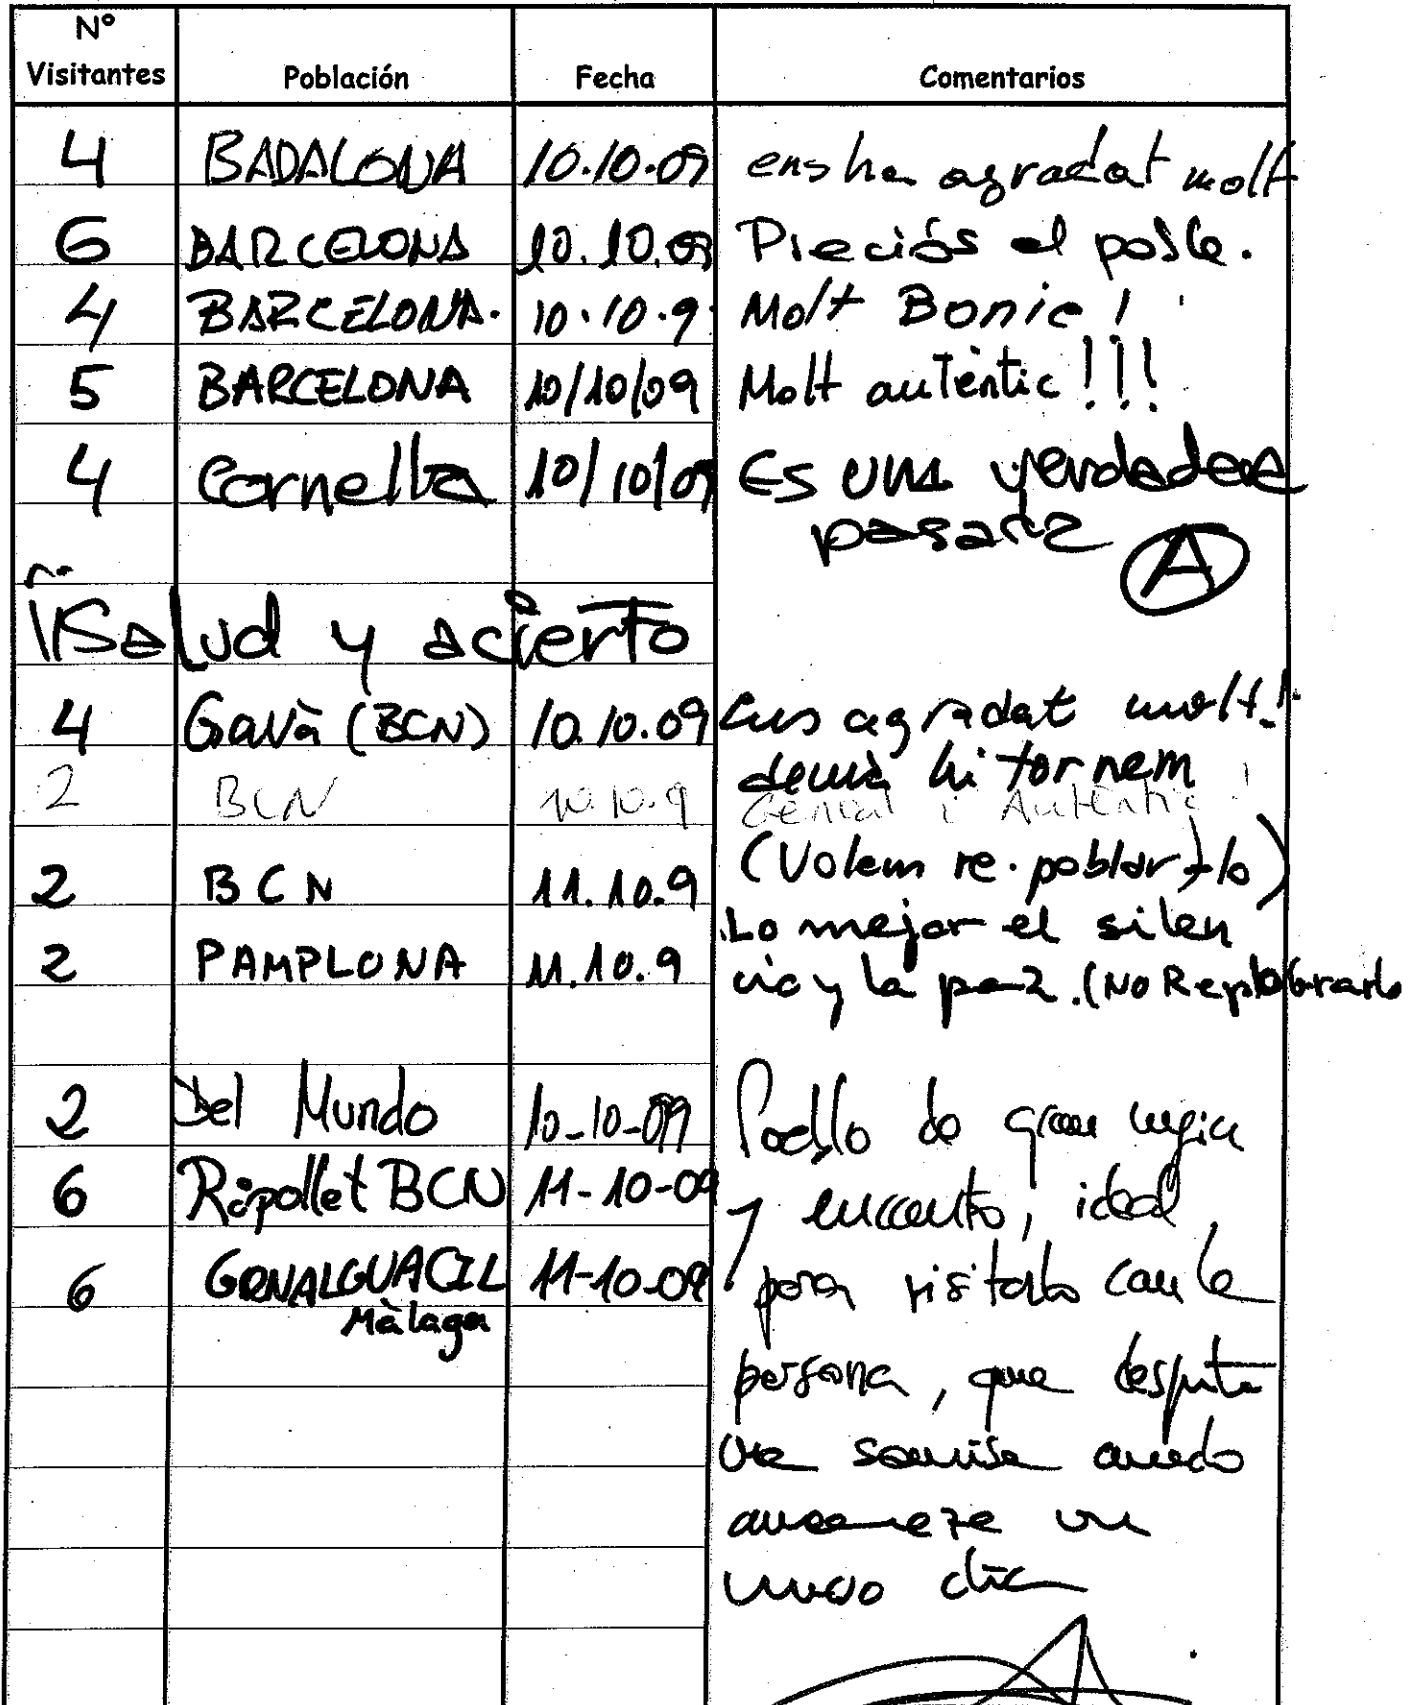 Nº
Visitantes Población Fecha Comentarios
4 BADALONA 10.10.09 ens ha agradat molt
6 BARCELONA 10.10.09 Preciós el poble.
4 BARCELONA. 10.10.9 Molt Bonic!
5 BARCELONA 10/10/09 Molt autèntic!!!
4 Cornella 10/10/09 Es una verdadera
A
Salud y acierto
4 Gavà (BCN) 10.10.09 Ens agradat molt!
demà hi tornem
2 BCN 10.10.9 Genial i Autèntic!
(Volem re.poblar-lo)
2 BCN 11.10.9
Lo mejor el silen
2 PAMPLONA 11.10.9
cio y la paz. (No Replobrarlo
2 Del Mundo 10-10-09 de gran
6 Ripollet BCN 11-10-09
y encanto, ideal
6 GENALGUACIL 11-10-09
para visitarlo con la
Málaga
persona, que
una sonrisa cuando
un
nuevo día